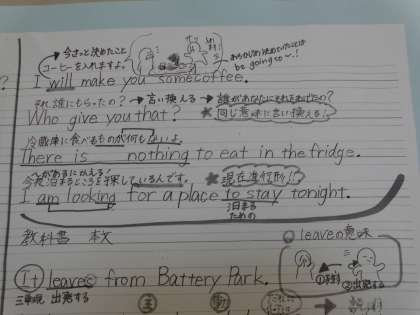 今さっと決めたこと
コーヒーを入れますよ。
あらかじめ決めていたことは
be going to ~!
I will make you some coffee.
それ誰にもらったの? → 言い換える → 誰があなたにそれをあげたの?
Who give you that? ★同じ意味に言い換える!
冷蔵庫に食べるものが何もないよ。
There is nothing to eat in the fridge.
があるにかえる!
今夜泊まるところを探しているんです。 ★現在進行形!?
I am looking for a place to stay tonight.
泊まる
ための
教科書 本文
leaveの意味
It leaves from Battery Park.
三単現 出発する
②出発する